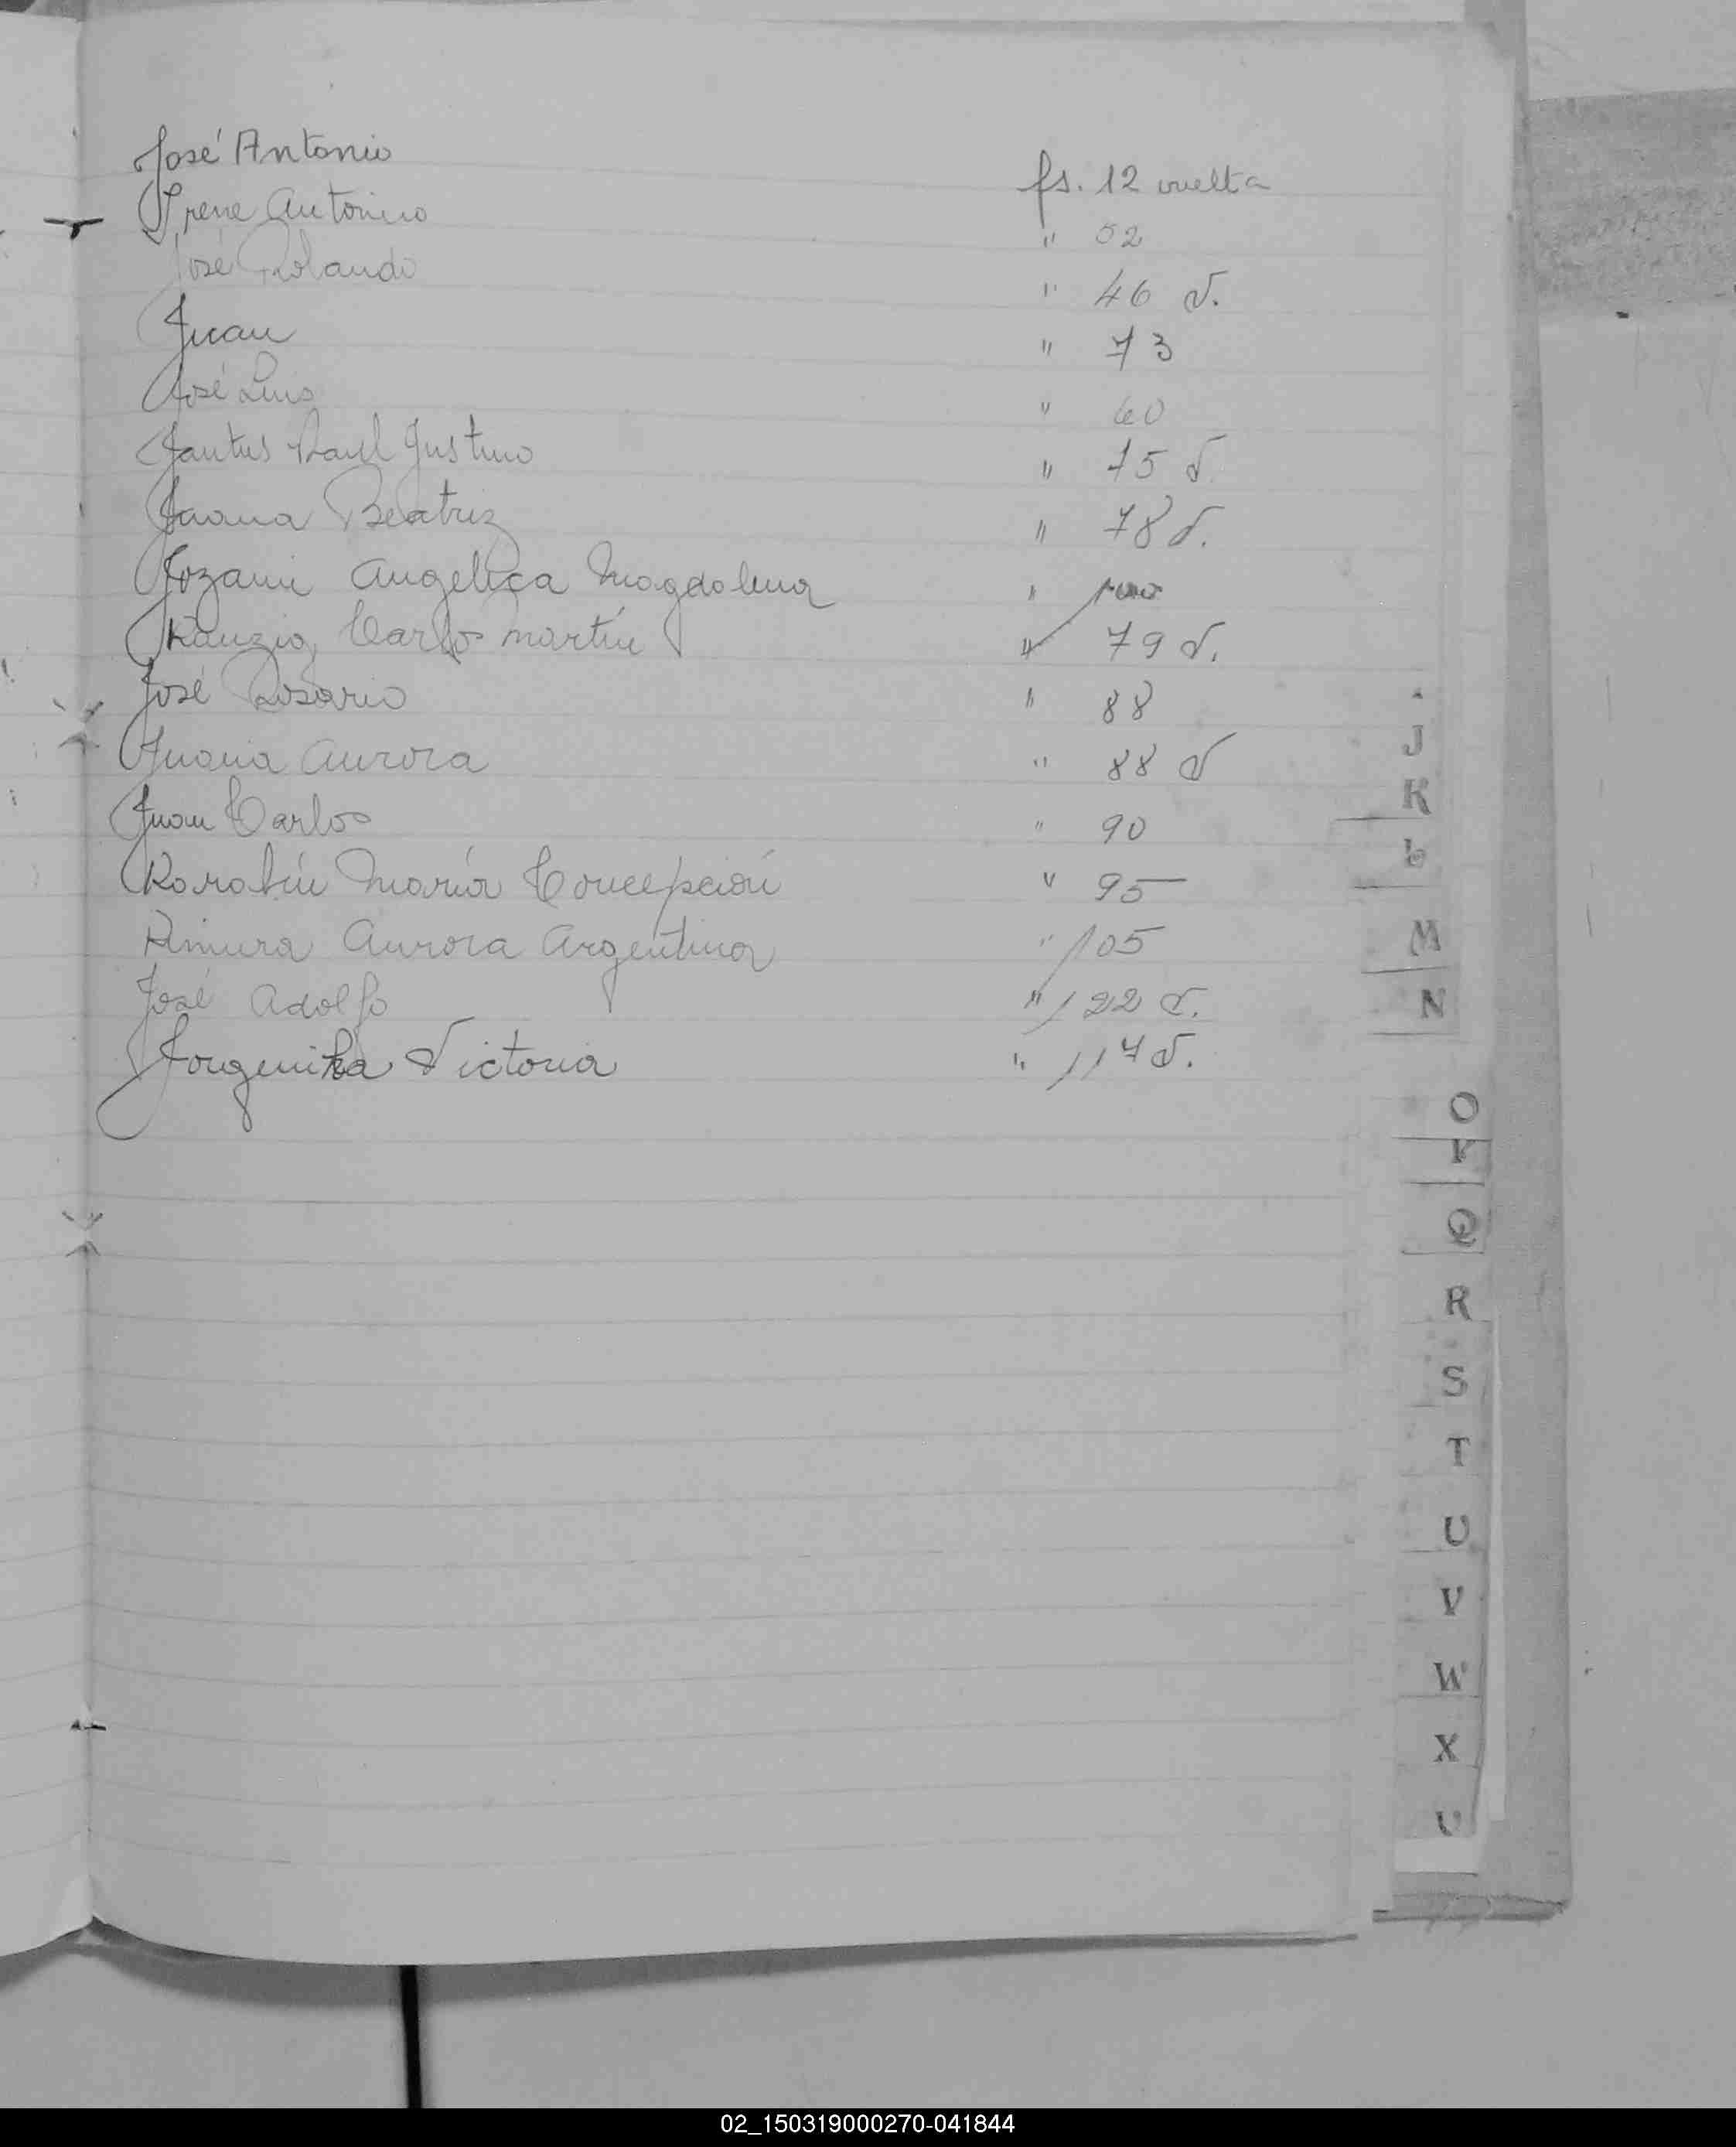 José Antonio fs. 12 vuelta
Irene Antonio " 52
José Rolando " 46 v.
Juan " 73
José Luis " 60
Jantus Raul Justino " 75 v.
Juana Beatriz " 78 v.
Jozami Angelica Magdalena "
Kauzig Carlos Martín " 79 v.
José Rosario " 88
Juana Aurora " 88 v
Juan Carlos " 90
María Concepción " 95
Kimura Aurora Argentina " 105
José Adolfo " 122 v.
Victoria " 117 v.
J
K
L
M
N
O
P
Q
R
S
T
U
V
W
X
02_150319000270-041844